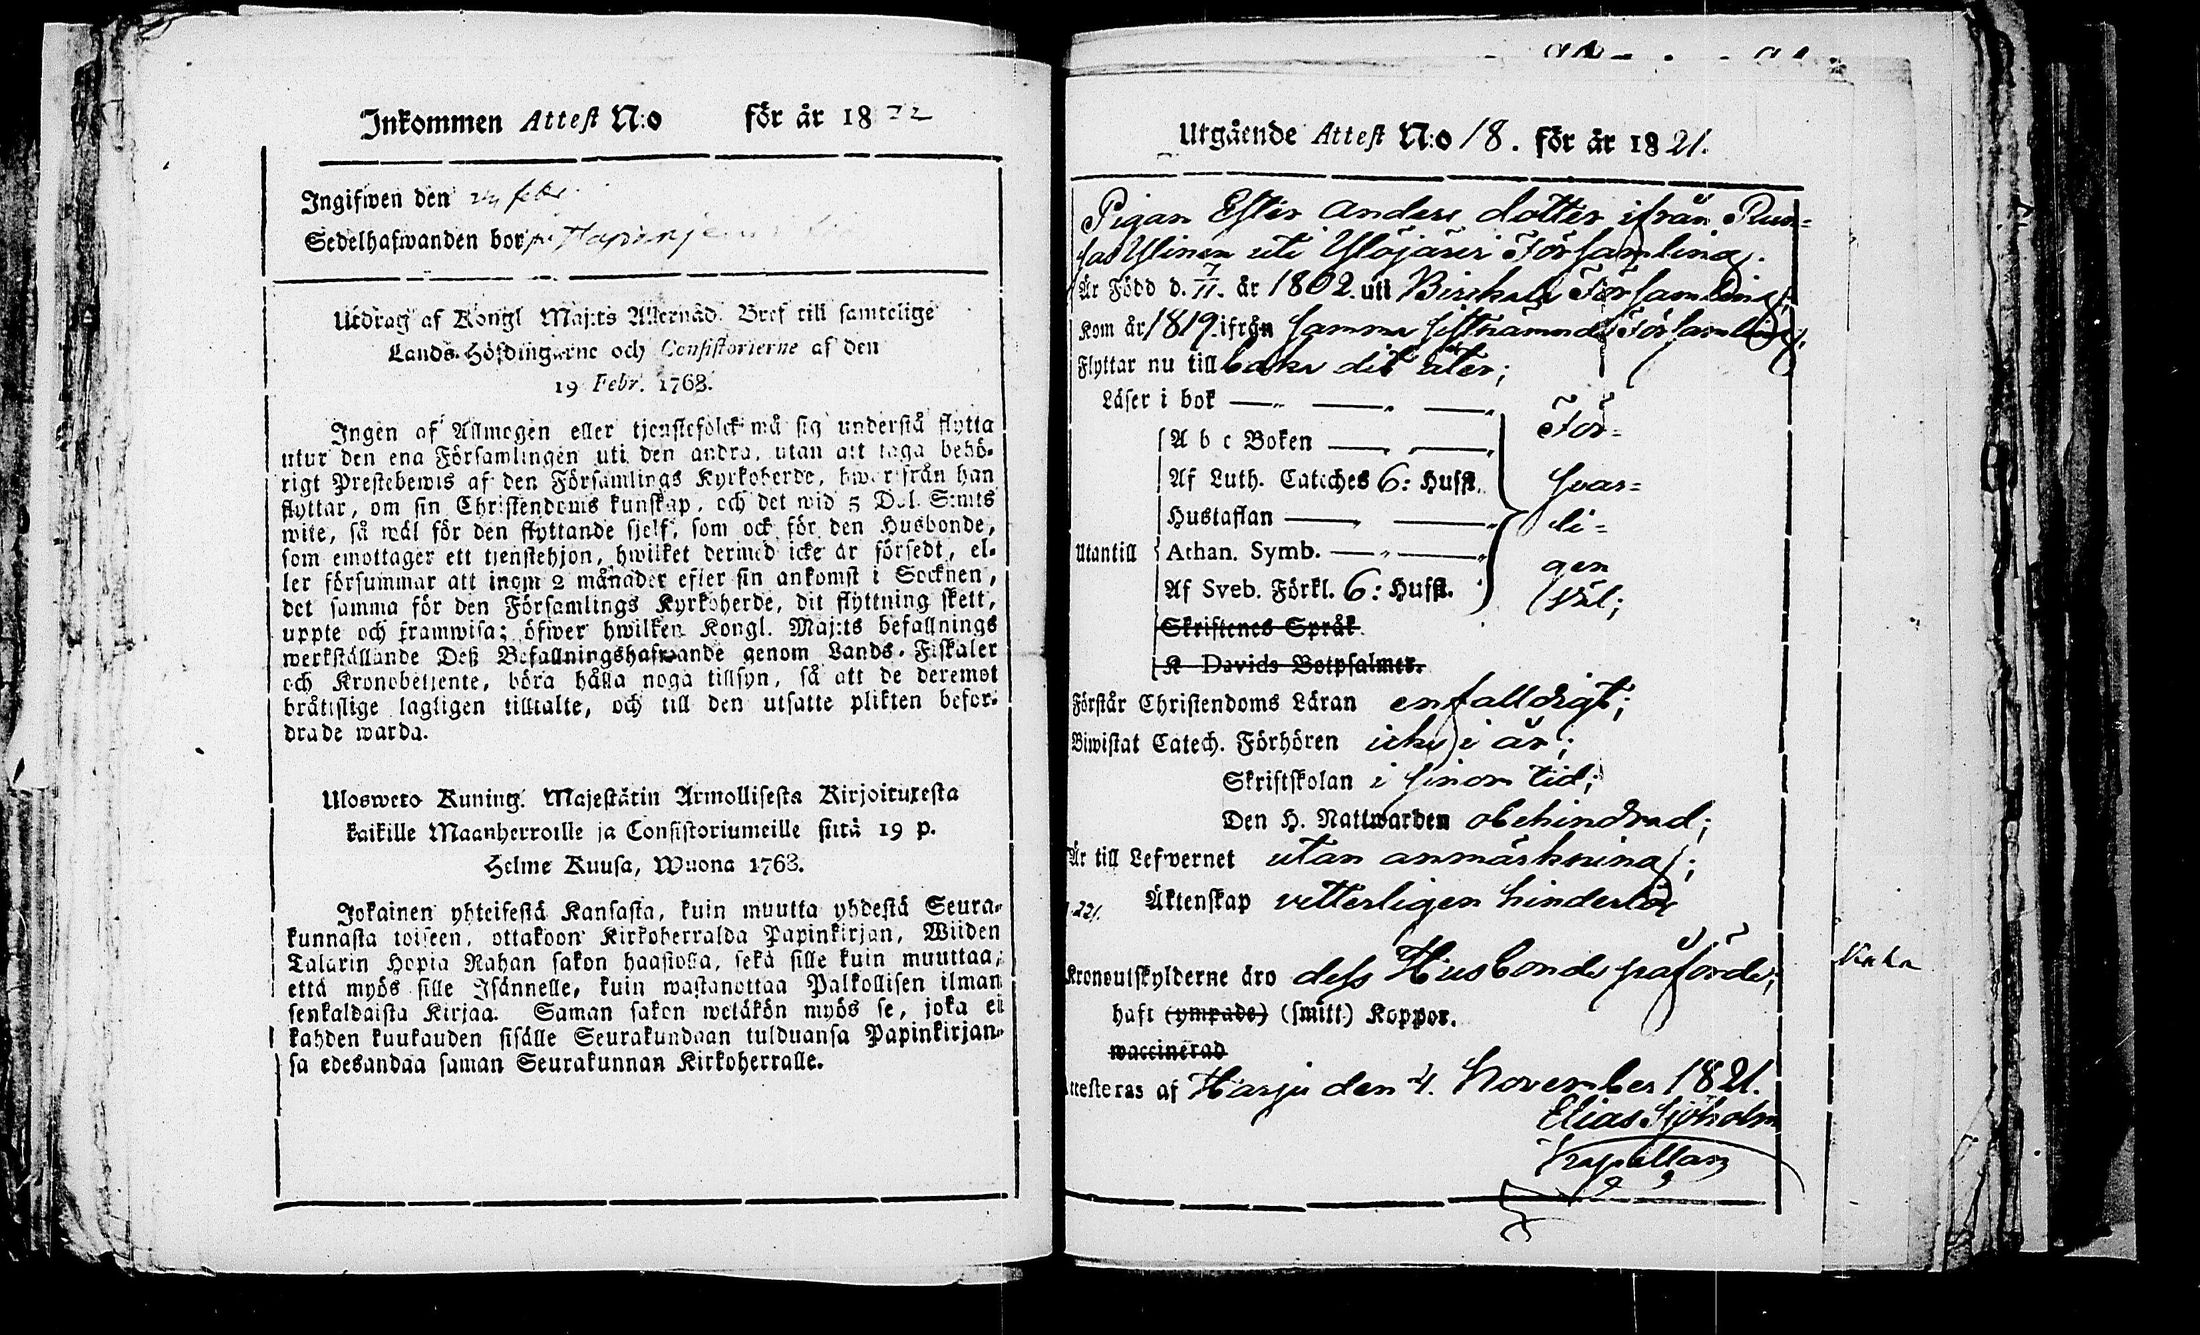 Inkommen Attest N:o för år 1822
Ingifwen den 24 febr.
Sedelhafwanden bor
Utdrag af Kongl Maj:ts Allernåd. Bref till samtelige
Lands-Höfdingarne och Consistorierne af den
19 Febr. 1768.
Ingen af Allmogen eller tjenstefolck må sig understå flytta
utur den ena Församlingen uti den andra, utan att taga behö-
rigt Prestebewis af den Församlings Kyrkoherde, hwarifrån han
flyttar, om sin Christendoms kunskap, och det wid 5 Dal. S:mts
wite, så wäl för den flyttande sjelf, som ock för den Husbonde,
som emottager ett tjenstehjon, hwilket dermed icke är försedt, el-
ler försummar att inom 2 månader efter sin ankomst i Socknen,
det samma för den Församlings Kyrkoherde, dit flyttning skett,
uppte och framwisa; öfwer hwilken Kongl. Maj:ts befallnings
werkställande Deß Befallningshafwande genom Lands-Fiskaler
och Kronobetjente, böra hålla noga tillsyn, så att de deremot
bråttslige lagligen tilltalte, och till den utsatte plikten befor-
drade warda.
Ulosweto Kuning. Majestätin Armollisesta Kirjoituxesta
kaikille Maanherroille ja Consistoriumeille siitä 19 p.
Helme Kuusa, Wuona 1768.
Jokainen yhteisestä Kansasta, kuin muutta yhdestä Seura-
kunnasta toiseen, ottakoon Kirkoherralda Papinkirjan, Wiiden
Talarin Hopia Rahan sakon haastolla, sekä sille kuin muuttaa,
että myös sille Isännelle, kuin wastanottaa Palkollisen ilman
senkaldaista Kirjaa. Saman sakon wetäkön myös se, joka ei
kahden kuukauden sisälle Seurakundaan tulduansa Papinkirjan-
sa edesandaa saman Seurakunnan Kirkoherralle.
Utgående Attest N:o 18. för år 1821.
Pigan Ester Anders dotter ifrån Run-
sas Ylinen uti Ylöjärvi Församling.
Är Född d. 7/11. år 1802. uti Birkala Församling;
Kom år 1819. ifrån samma sistnämnde Församling;
Flyttar nu till baka dit åter;
Läser i bok
A b c Boken För-
Af Luth. Cateches 6: Hufst. svar-
Hustaflan li-
Utantill Athan. Symb. gen
Af Sveb. Förkl. 6: Hufst. väl;
Skriftenes Språk
K Davids Botpsalmer.
Förstår Christendoms Läran enfalldigt;
Biwistat Catech. Förhören icke i år;
Skriftskolan i sinom tid;
Den H. Nattwarden obehindrad;
Är till Lefwernet utan anmärkning;
Äktenskap vetterligen hinderlös
Kronoutskylderne äro dess Husbonde påförde;
haft (ympade) (smitt.) Koppor.
waccinerad
Attesteras af Harju den 4. November 1821.
Elias Sjöholm
Kapellan